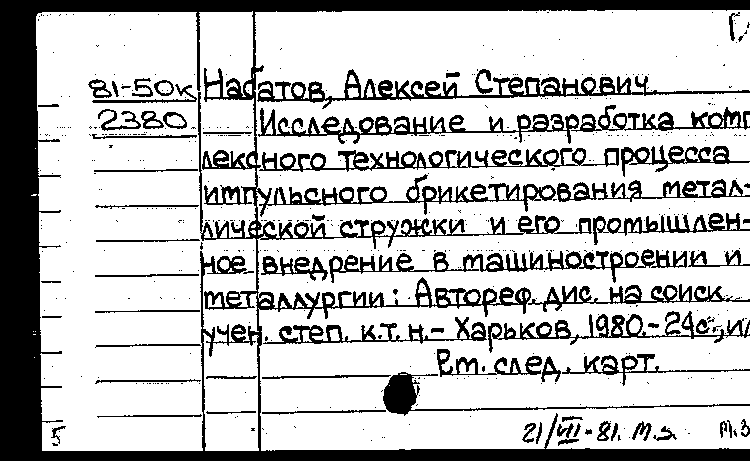 81-50к Набатов, Алексей Степанович
2380 Исследование и разработка комп
лексного технологического процесса
импульсного брикетирования метал-
лической стружки и его промышлен-
ное внедрение в машиностроении и
металлургии: Автореф. дис. на соиск.
учен. степ. к.т.н. - Харьков, 1980. - 24с., ил
См. след. карт.
5 21/VII-81. М.З. М.З